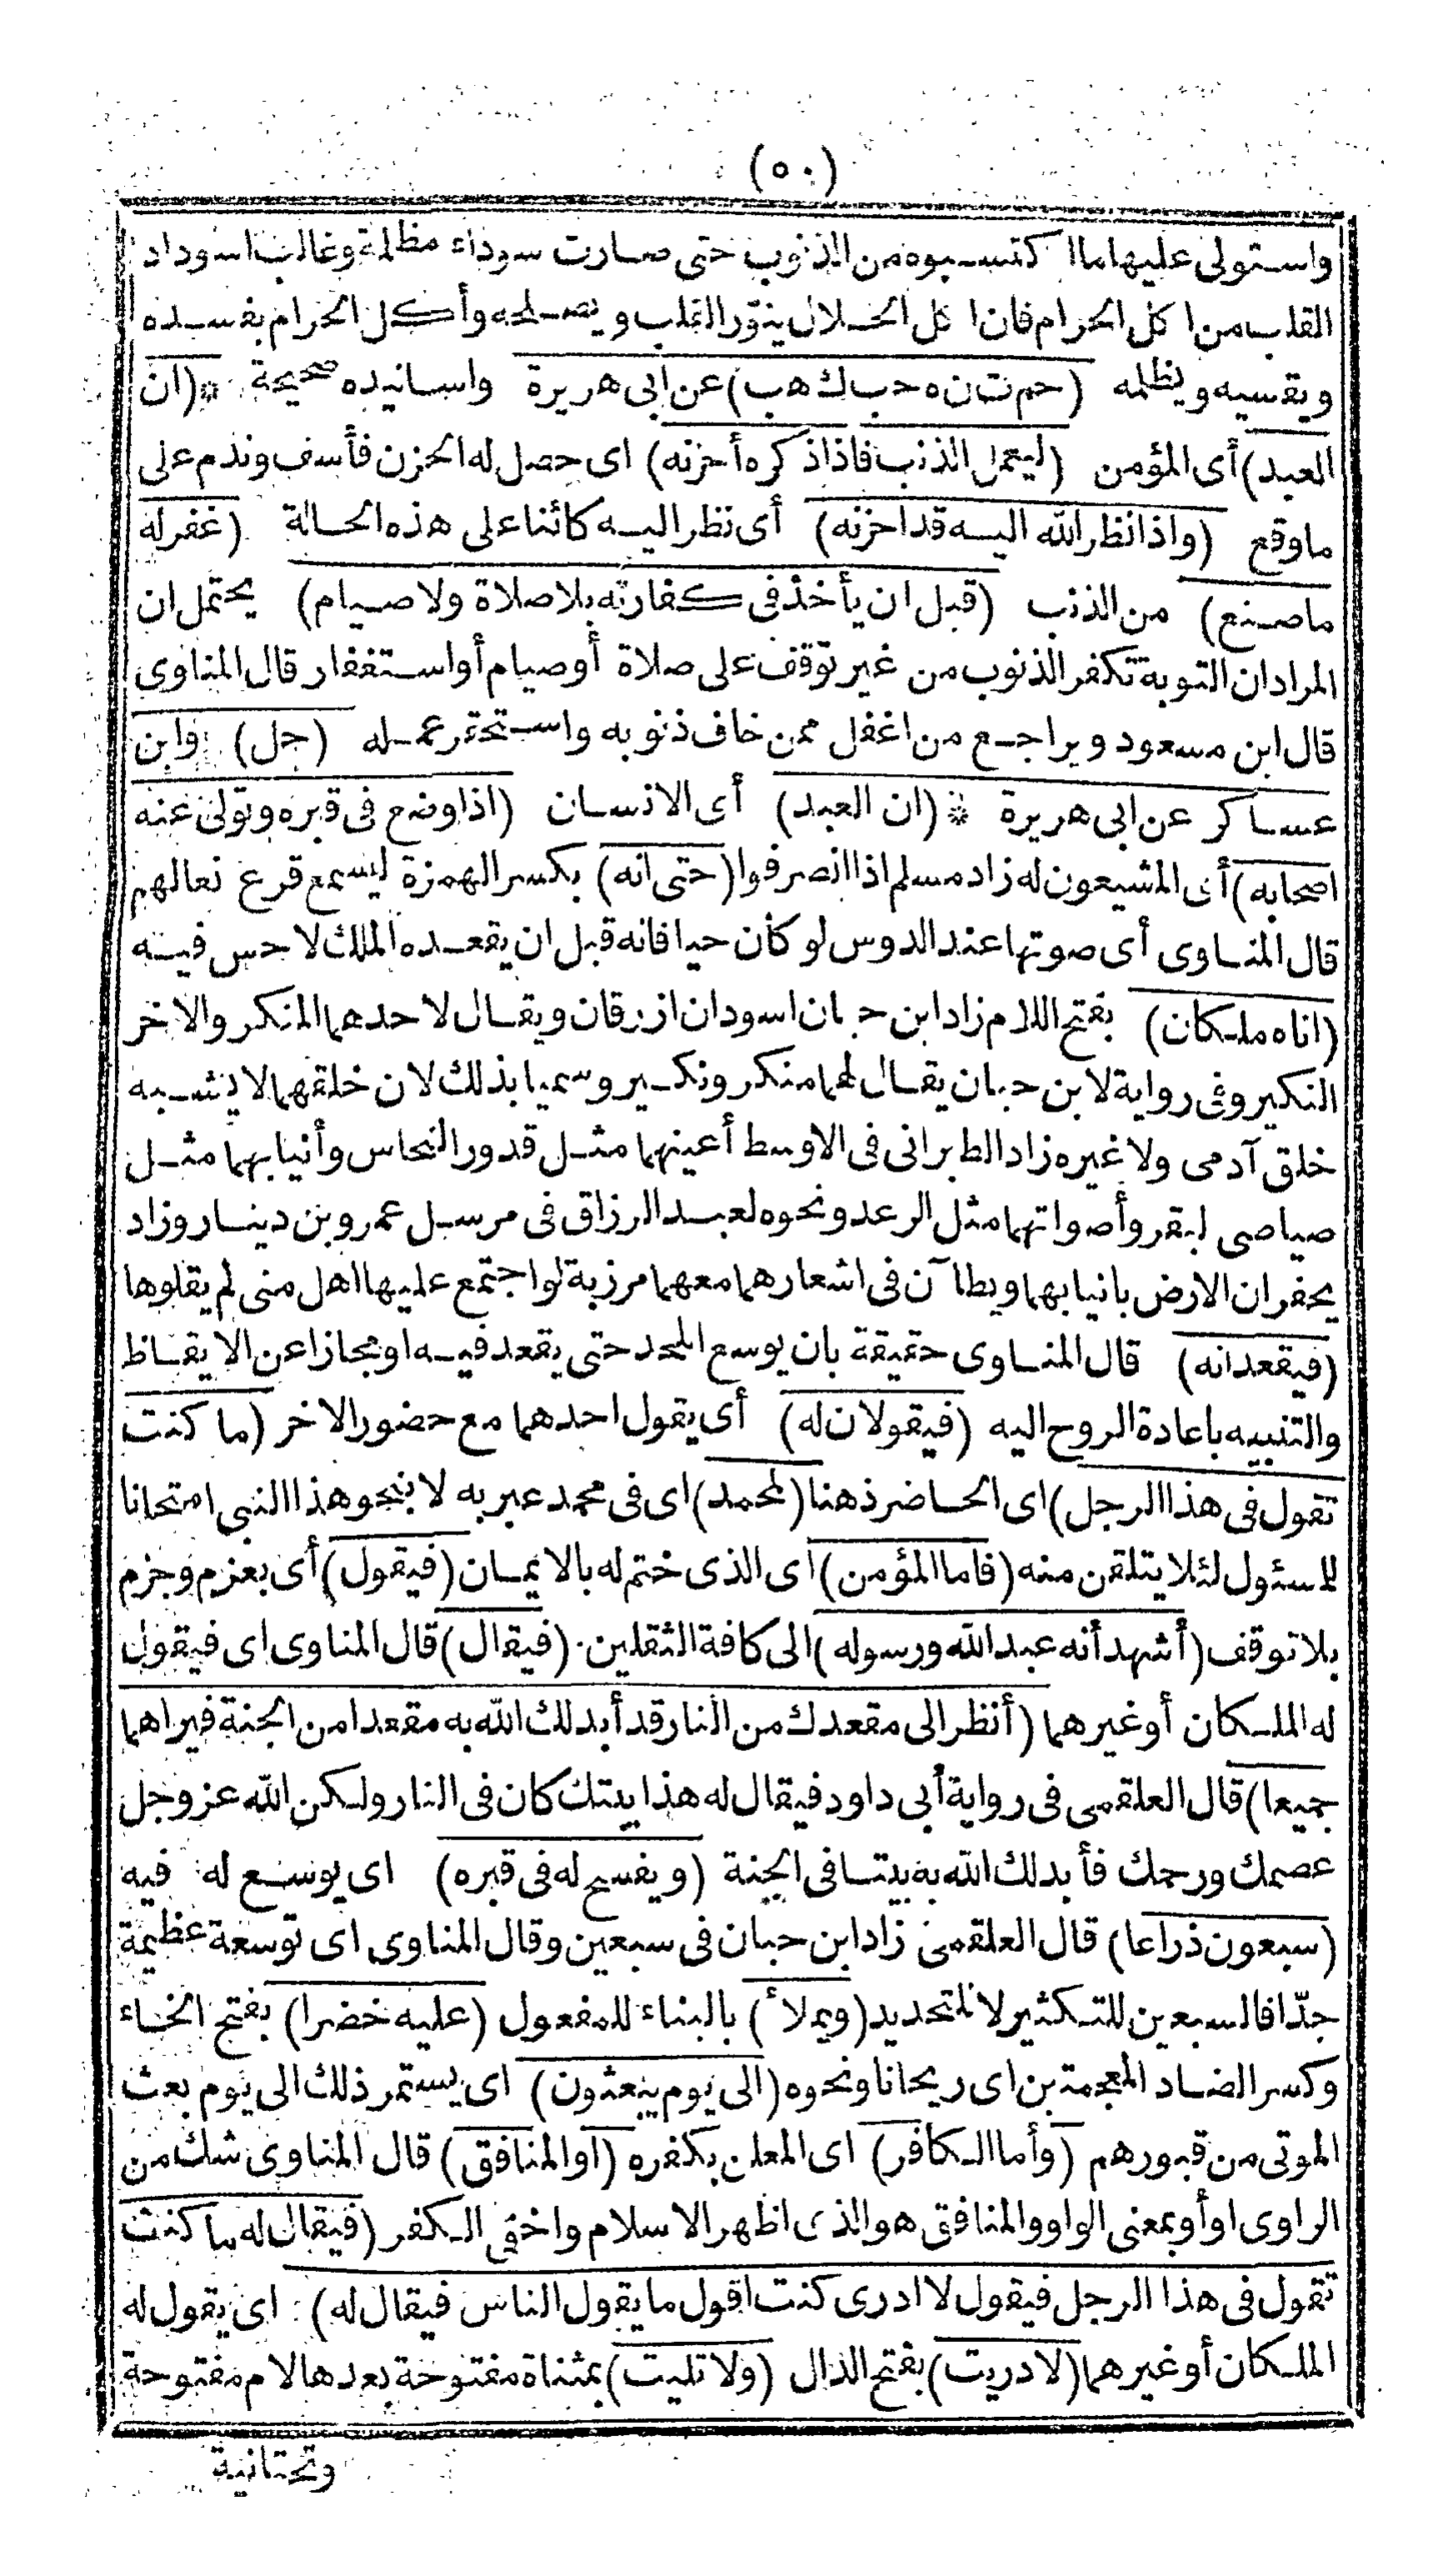 (٥٠)
واستولى عليها ما اكتسبوه من الذنوب حتى صارت سوداء مظلمة وغالب اسوداد
القلب من اكل الحرام فان اكل الحلال ينوّر القلب ويصلحه وأكل الحرام يفسده
ويقسيه ويظلمه (حم ت ن ه حب ك هب) عن ابى هريرة واسانيده صحيحة * (ان
العبد) أى المؤمن (ليعمل الذنب فاذا ذكره أحزنه) اى حصل له الحزن فأسف وندم على
ما وقع (واذا نظر الله اليه قد احزنه) أى نظر اليه كائنا على هذه الحالة (غفر له
ما صنع) من الذنب (قبل ان يأخذ فى كفارته بلا صلاة ولا صيام) يحتمل ان
المراد ان التوبة تكفر الذنوب من غير توقف على صلاة أو صيام أو استغفار قال المناوى
قال ابن مسعود ويراجع من اغفل ممن خاف ذنوبه واستحقر عمله (حل) وابن
عساكر عن ابى هريرة * (ان العبد) أى الانسان (اذا وضع فى قبره وتولى عنه
اصحابه) أى المشيعون له زاد مسلم اذا انصرفوا (حتى انه) بكسر الهمزة ليسمع قرع نعالهم
قال المناوى أى صوتها عند الدوس لو كان حيا فانه قبل ان يقعده الملك لا حس فيه
(اتاه ملكان) بفتح اللام زاد ابن حبان اسودان ازرقان ويقال لاحدهما المنكر والاخر
النكير وفى رواية لابن حبان يقال لهما منكر ونكير وسميا بذلك لان خلقهما لا يشبه
خلق آدمى ولا غيره زاد الطبرانى فى الاوسط أعينهما مثل قدور النحاس وأنيابهما مثل
صياصى لبقر وأصواتهما مثل الرعد ونحوه لعبد الرزاق فى مرسل عمرو بن دينار وزاد
يحفران الارض بانيابهما ويطآن فى اشعارهما معهما مرزبة لو اجتمع عليها اهل منى لم يقلوها
(فيقعدانه) قال المناوى حقيقة بان يوسع اللحد حتى يقعد فيه او مجازا عن الايقاظ
والتنبيه باعادة الروح اليه (فيقولان له) أى يقول احدهما مع حضور الاخر (ما كنت
تقول فى هذا الرجل) اى الحاضر ذهنا (لمحمد) اى فى محمد عبر به لا بنحو هذا النبى امتحانا
للسئول لئلا يتلقن منه (فاما المؤمن) اى الذى ختم له بالايمان (فيقول) أى بعزم وجزم
بلا توقف (أشهد أنه عبد الله ورسوله) الى كافة الثقلين (فيقال) قال المناوى اى فيقول
له الملكان أو غيرهما (أنظر الى مقعدك من النار قد أبدلك الله به مقعدا من الجنة فيراهما
جميعا) قال العلقمى فى رواية أبى داود فيقال له هذا بيتك كان فى النار ولكن الله عز وجل
عصمك ورحمك فأبدلك الله به بيتا فى الجنة (ويفسح له فى قبره) اى يوسع له فيه
(سبعون ذراعا) قال العلقمى زاد ابن حبان فى سبعين وقال المناوى اى توسعة عظيمة
جدّا فالسبعين للتكثير لا للتحديد (ويملأ) بالبناء للمفعول (عليه خضرا) بفتح الخاء
وكسر الضاد المعجمتين اى ريحانا ونحوه (الى يوم يبعثون) اى يستمر ذلك الى يوم بعث
الموتى من قبورهم (وأما الكافر) اى المعلن بكفره (أو المنافق) قال المناوى شك من
الراوى او أو بمعنى الواو والمنافق هو الذى اظهر الاسلام واخفى الكفر (فيقال له ما كنت
تقول فى هذا الرجل فيقول لا ادرى كنت اقول ما يقول الناس فيقال له) اى يقول له
الملكان أو غيرهما (لا دريت) بفتح الدال (ولا تليت) بمثناة مفتوحة بعدها لام مفتوحة
وتحتانية